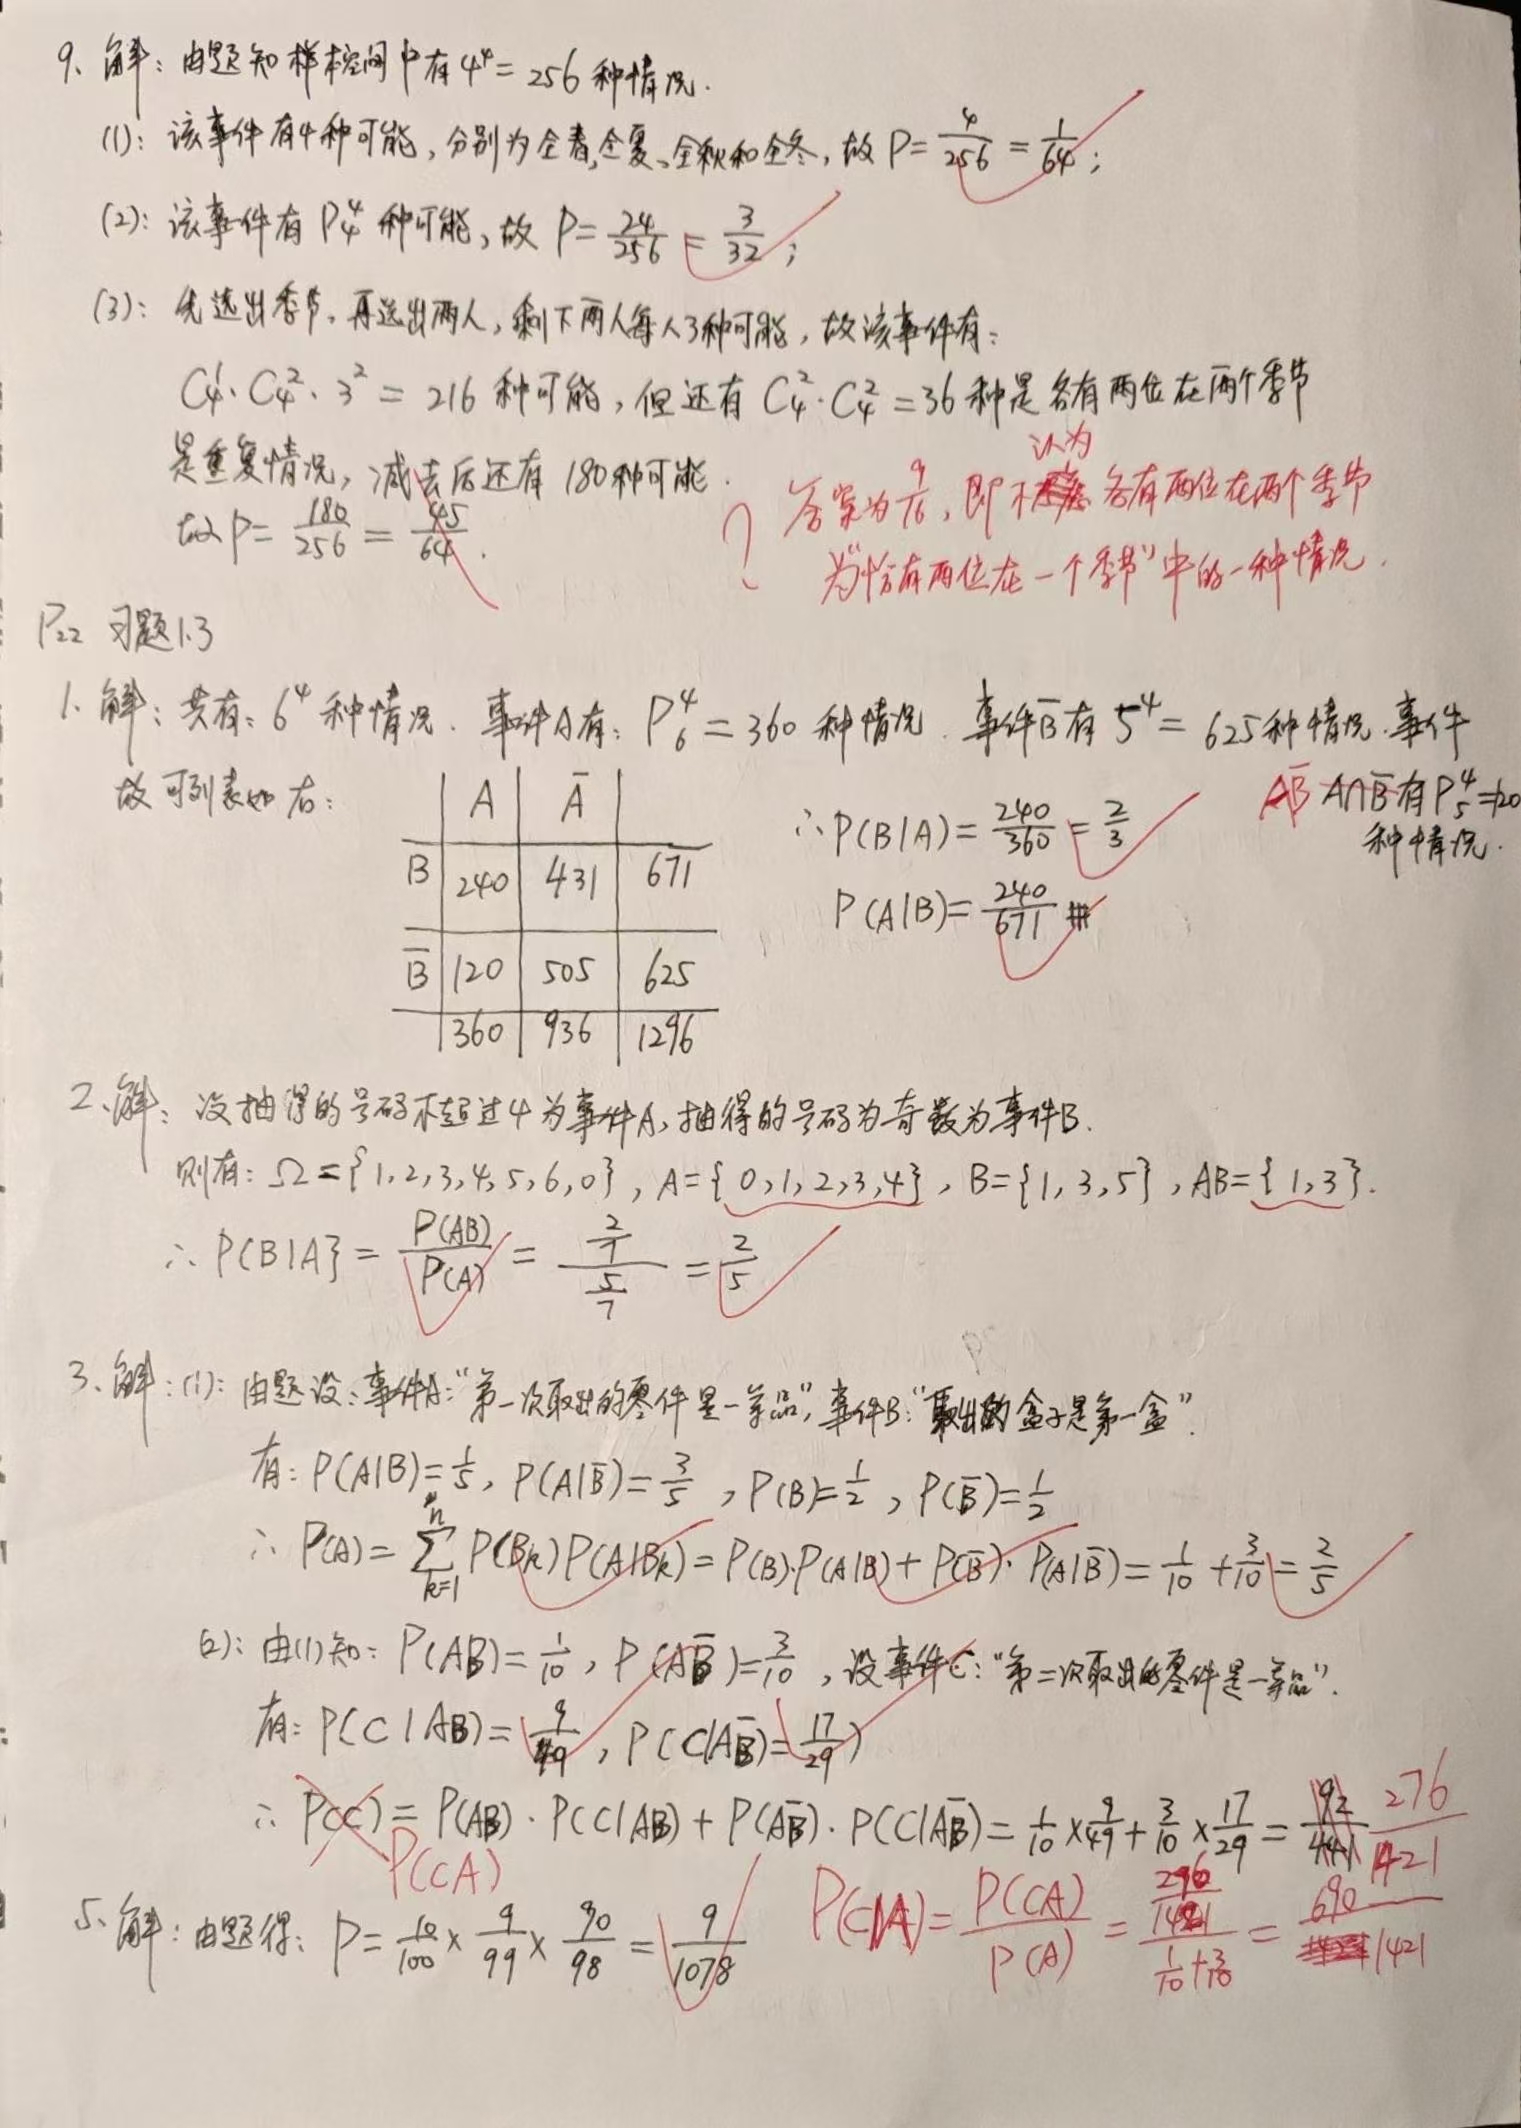 9、解：由题知样本空间中有 4⁴ = 256 种情况.
(1)：该事件有4种可能，分别为全春、全夏、全秋和全冬，故 P = 4/256 = 1/64；
(2)：该事件有 P₄⁴ 种可能，故 P = 24/256 = 3/32；
(3)：先选出季节，再选出两人，剩下两人每人3种可能，故该事件有：
C₄¹·C₄²·3² = 216 种可能，但还有 C₄²·C₄² = 36 种是各有两位在两个季节
是重复情况，减去后还有 180种可能.
故 P = 180/256 = 45/64.
? 答案为 9/16，即不认为各有两位在两个季节
为“恰有两位在一个季节”中的一种情况.
P₂₂ 习题1.3
1. 解：共有：6⁴ 种情况. 事件A有：P₆⁴ = 360 种情况. 事件B̅有 5⁴ = 625种情况. 事件
A∩B̅有 P₅⁴ = 120
种情况.
AB̅
故可列表如右：
A A̅
B 240 431 671
B̅ 120 505 625
360 936 1296
∴ P(B|A) = 240/360 = 2/3
P(A|B) = 240/671
2、解：设抽得的号码不超过4为事件A，抽得的号码为奇数为事件B.
则有：Ω = {1,2,3,4,5,6,0}，A = {0,1,2,3,4}，B = {1,3,5}，AB = {1,3}.
∴ P(B|A} = P(AB)/P(A) = (2/7)/(5/7) = 2/5
3、解：(1)：由题设：事件A：“第一次取出的零件是一等品”，事件B：“取出的盒子是第一盒”.
有：P(A|B) = 1/5，P(A|B̅) = 3/5，P(B) = 1/2，P(B̅) = 1/2
∴ P(A) = Σ_{k=1}^{n} P(Bₖ)P(A|Bₖ) = P(B)·P(A|B) + P(B̅)·P(A|B̅) = 1/10 + 3/10 = 2/5
(2)：由(1)知：P(AB) = 1/10，P(AB̅) = 3/10，设事件C：“第二次取出的零件是一等品”.
有：P(C|AB) = 9/49，P(C|AB̅) = 17/29)
∴ P(C) = P(AB)·P(C|AB) + P(AB̅)·P(C|AB̅) = 1/10 × 9/49 + 3/10 × 17/29 = 276/1421
P(CA)
5、解：由题得：P = 10/100 × 9/99 × 90/98 = 9/1078
P(C|A) = P(CA)/P(A) = (276/1421)/(1/10 + 3/10) = 690/1421